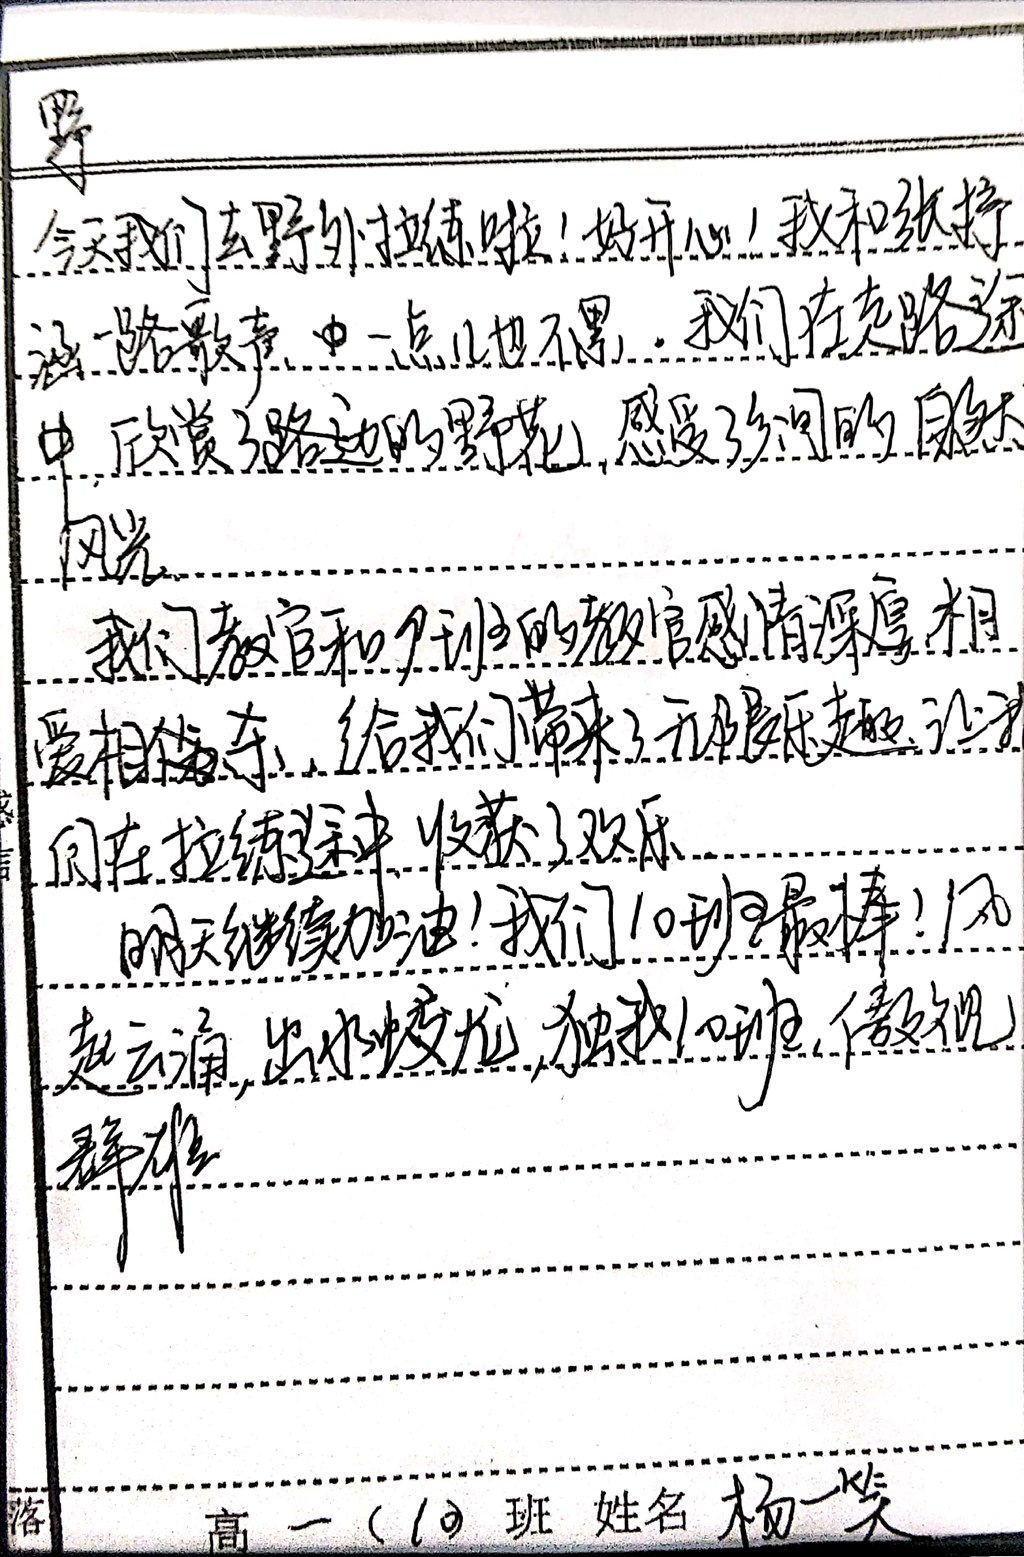 野
今天我们去野外拉练啦！好开心！我和张抒
涵一路歌声中一点儿也不累．我们在走路途
中，欣赏了路边的野花，感受了乡间的自然
风光
我们教官和9班的教官感情深厚相
爱相杀，给我们带来了无限乐趣、让我
们在拉练途中收获了欢乐
明天继续加油！我们10班最棒！风
起云涌，出水蛟龙，独我10班，傲视
群雄
落 高一（10）班 姓名 杨一笑